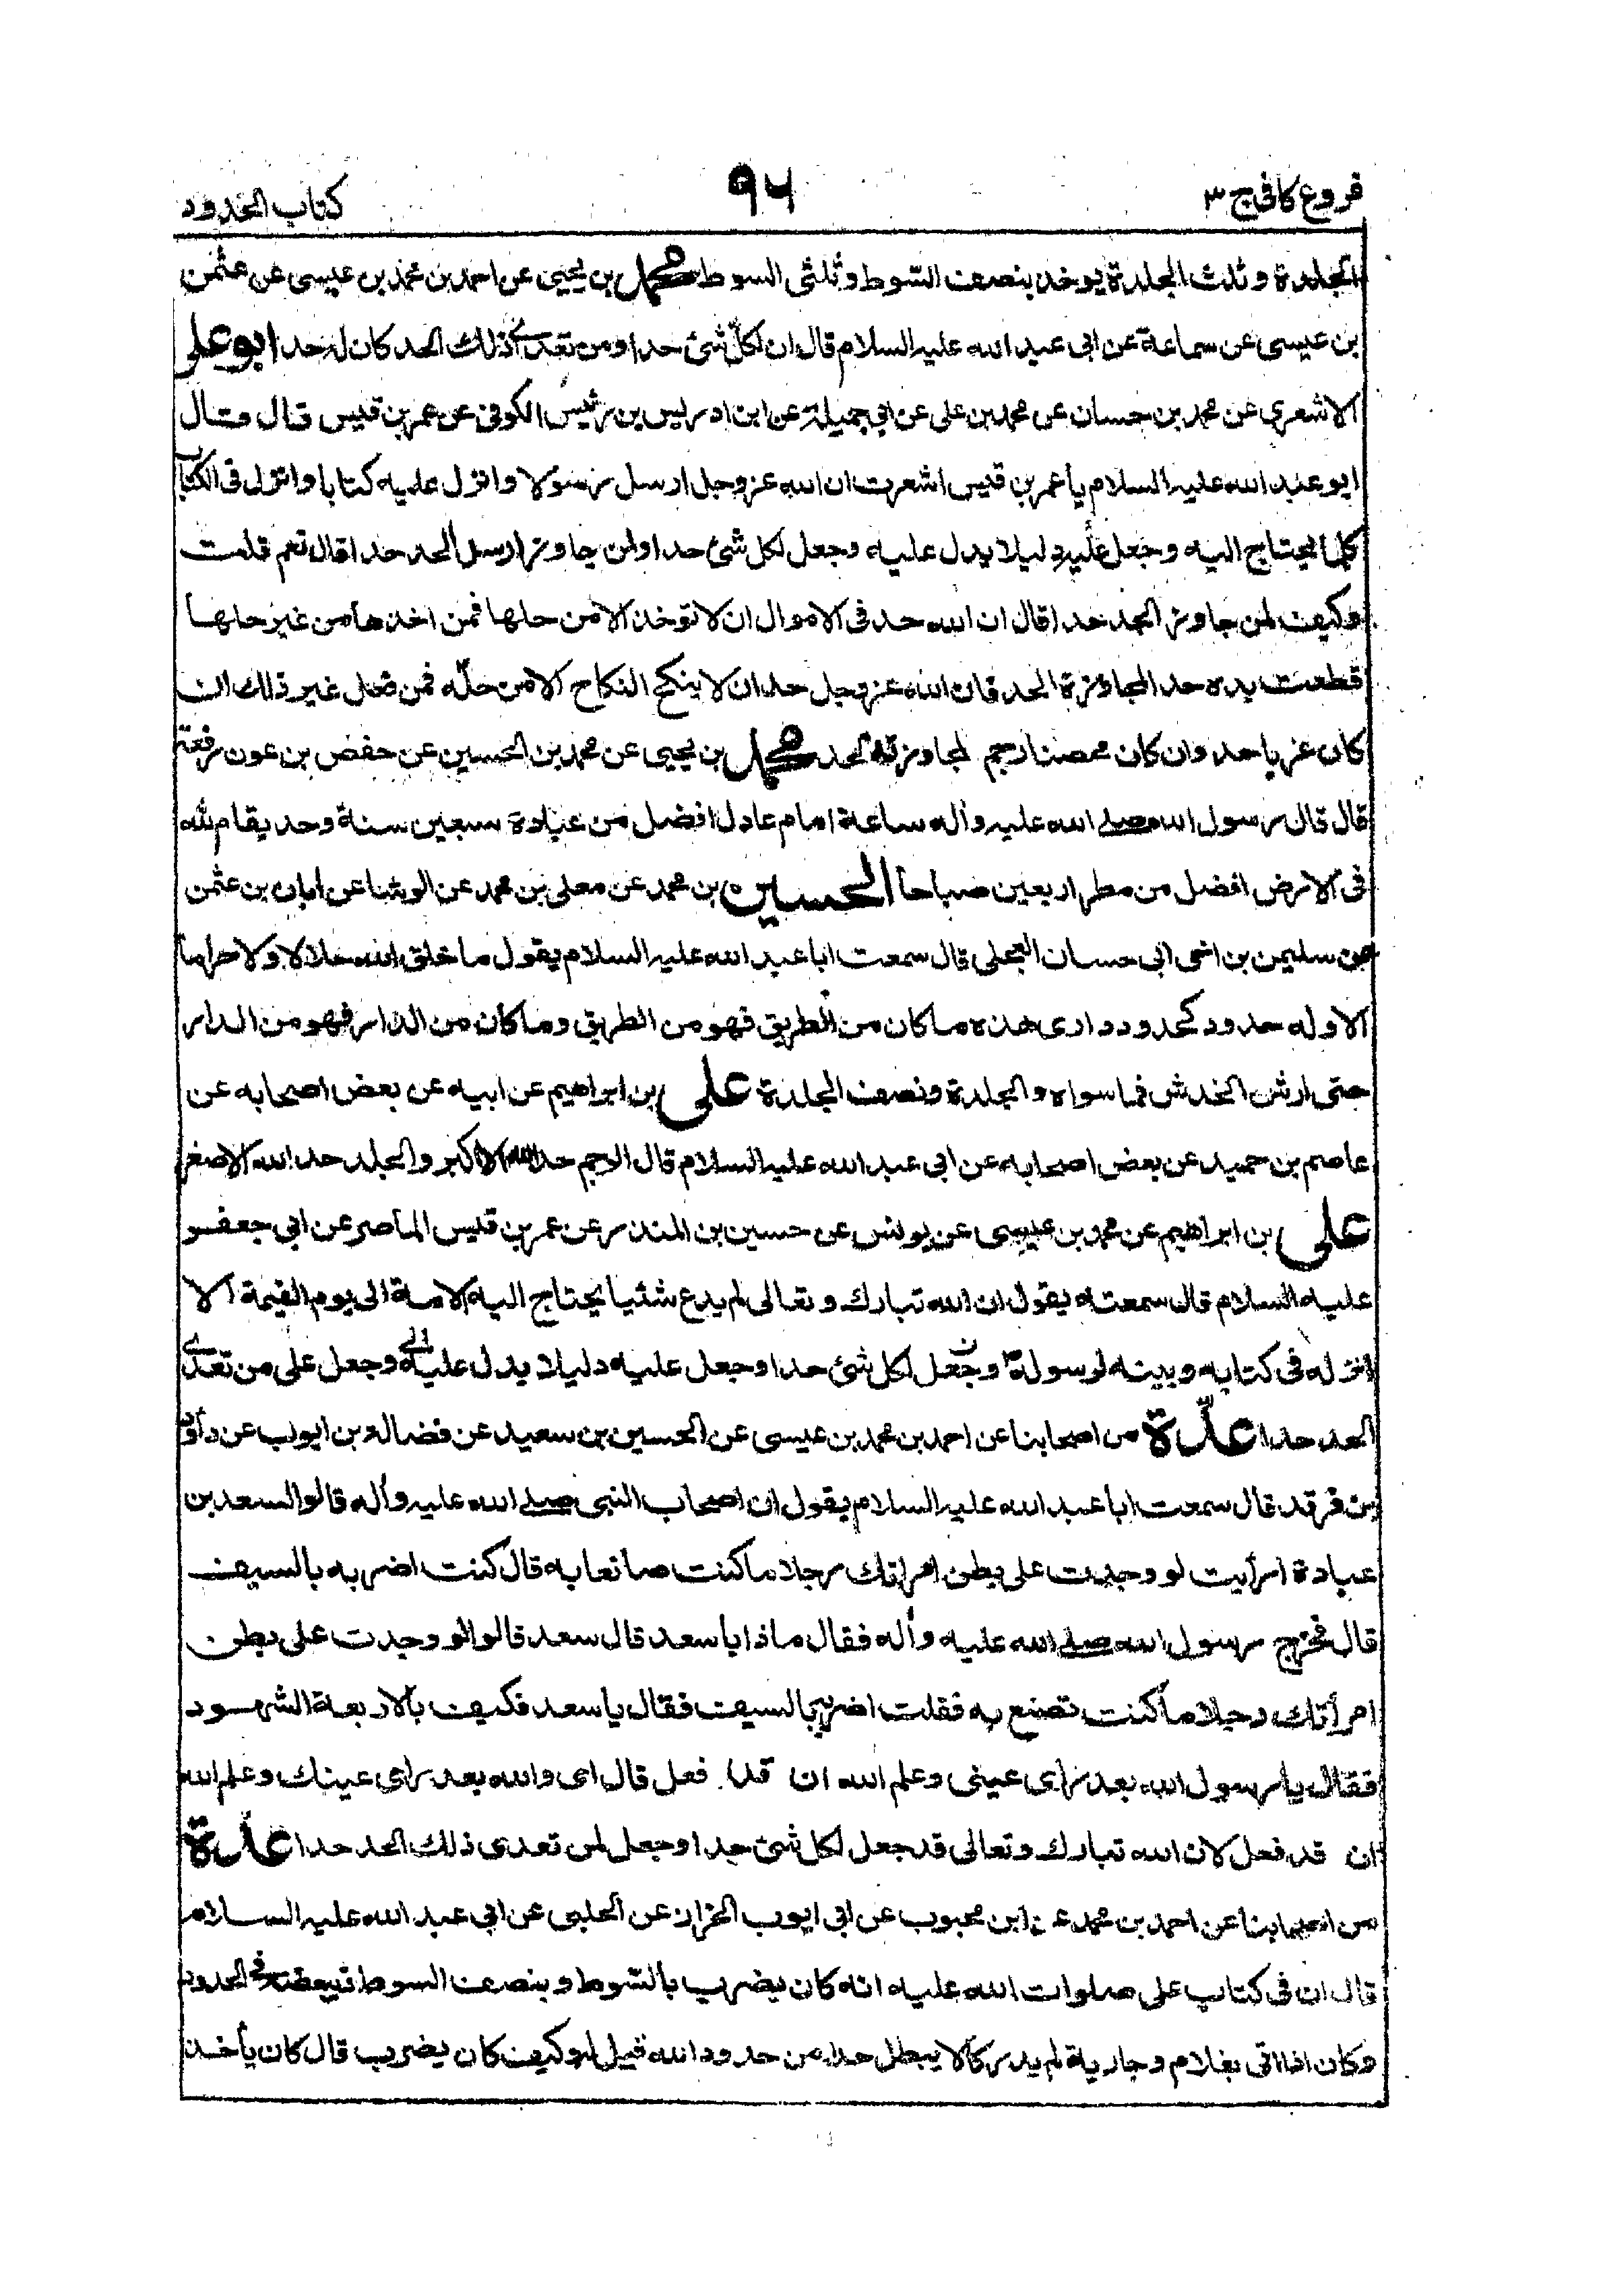 فروع كافى ج ٣
٩٦
كتاب الحدود
الجلدة وثلث الجلدة يوخذ بنصف السوط وثلثى السوط محمد بن يحيى عن احمد بن محمد بن عيسى عن عثمن
بن عيسى عن سماعة عن ابى عبد الله عليه السلام قال ان لكل شئ حدا ومن تعدى ذلك الحد كان له حد ابو على
الاشعرى عن محمد بن حسان عن محمد بن على عن ابى جميلة عن ابن ادريس بن رئيس الكوفى عن عمر بن قيس قال قال
ابو عبد الله عليه السلام يا عمر بن قيس اشعرت ان الله عز وجل ارسل رسولا وانزل عليه كتابا وانزل فى الكتاب
كل ما يحتاج اليه وجعل عليه دليلا يدل عليه وجعل لكل شئ حدا ولمن جاوز الحد حدا قال نعم قلت
وكيف لمن جاوز الحد حدا قال ان الله حد فى الاموال ان لا توخذ الا من حلها فمن اخذها من غير حلها
قطعت يده حد المجاوزة الحد فان الله عز وجل حد ان لا ينكح النكاح الا من حله فمن فعل غير ذلك ان
كان عزبا حد وان كان محصنا رجم لمجاوزته الحد محمد بن يحيى عن محمد بن الحسين عن حفص بن عون رفعه
قال قال رسول الله صلى الله عليه وآله ساعة امام عادل افضل من عبادة سبعين سنة وحد يقام لله
فى الارض افضل من مطر اربعين صباحا الحسين بن محمد عن معلى بن محمد عن الوشا عن ابان بن عثمن
عن سليمن بن اخى ابى حسان العجلى قال سمعت ابا عبد الله عليه السلام يقول ما خلق الله حلالا ولا حراما
الا وله حدود كحدود دارى هذه ما كان من الطريق فهو من الطريق وما كان من الدار فهو من الدار
حتى ارش الخدش فما سواه والجلدة ونصف الجلدة على بن ابراهيم عن ابيه عن بعض اصحابه عن
عاصم بن حميد عن بعض اصحابه عن ابى عبد الله عليه السلام قال الرجم حد الله الاكبر والجلد حد الله الاصغر
على بن ابراهيم عن محمد بن عيسى عن يونس عن حسين بن المنذر عن عمر بن قيس الماصر عن ابى جعفر
عليه السلام قال سمعته يقول ان الله تبارك وتعالى لم يدع شئيا يحتاج اليه الامة الى يوم القيمة الا
انزله فى كتابه وبينه لرسوله وجعل لكل شئ حدا وجعل عليه دليلا يدل عليه وجعل على من تعدى
الحد حدا عدة من اصحابنا عن احمد بن محمد بن عيسى عن الحسين بن سعيد عن فضالة بن ايوب عن داود
بن فرقد قال سمعت ابا عبد الله عليه السلام يقول ان اصحاب النبى صلى الله عليه وآله قالوا لسعد بن
عبادة ارأيت لو وجدت على بطن امراتك رجلا ما كنت صانعا به قال كنت اضربه بالسيف
قال فخرج رسول الله صلى الله عليه وآله فقال ماذا يا سعد قال سعد قالوا لو وجدت على بطن
امرأتك رجلا ما كنت تصنع به فقلت اضربه بالسيف فقال يا سعد فكيف بالاربعة الشهود
فقال يا رسول الله بعد راى عينى وعلم الله ان قد فعل قال اى والله بعد راى عينك وعلم الله
ان قد فعل لان الله تبارك وتعالى قد جعل لكل شئ حدا وجعل لمن تعدى ذلك الحد حدا عدة
من اصحابنا عن احمد بن محمد عن ابن محبوب عن ابى ايوب الخزان عن الحلبى عن ابى عبد الله عليه السلام
قال ان فى كتاب على صلوات الله عليه انه كان يضرب بالسوط وبنصف السوط وببعضه فى الحدود
وكان اذا اتى بغلام وجارية لم يدركا لا يبطل حدا من حدود الله قيل له وكيف كان يضرب قال كان يأخذ